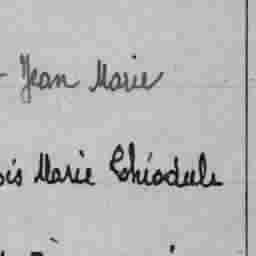 Jean Marie
ois Marie Théodule